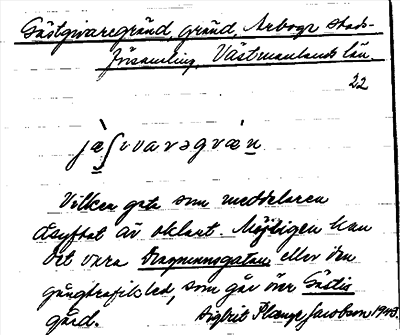 Gästgivaregränd, gränd, Arboga stads-
församling, Västmanlands län.
22
jæ̀ʃıvarəgræ̀n
Vilken gata som meddelaren
åsyftat är oklart. Möjligen kan
det vara Dragmansgatan eller den
gångtrafikled, som går över Gästis
gård. Sigbrit Plænge Jacobson 1980.